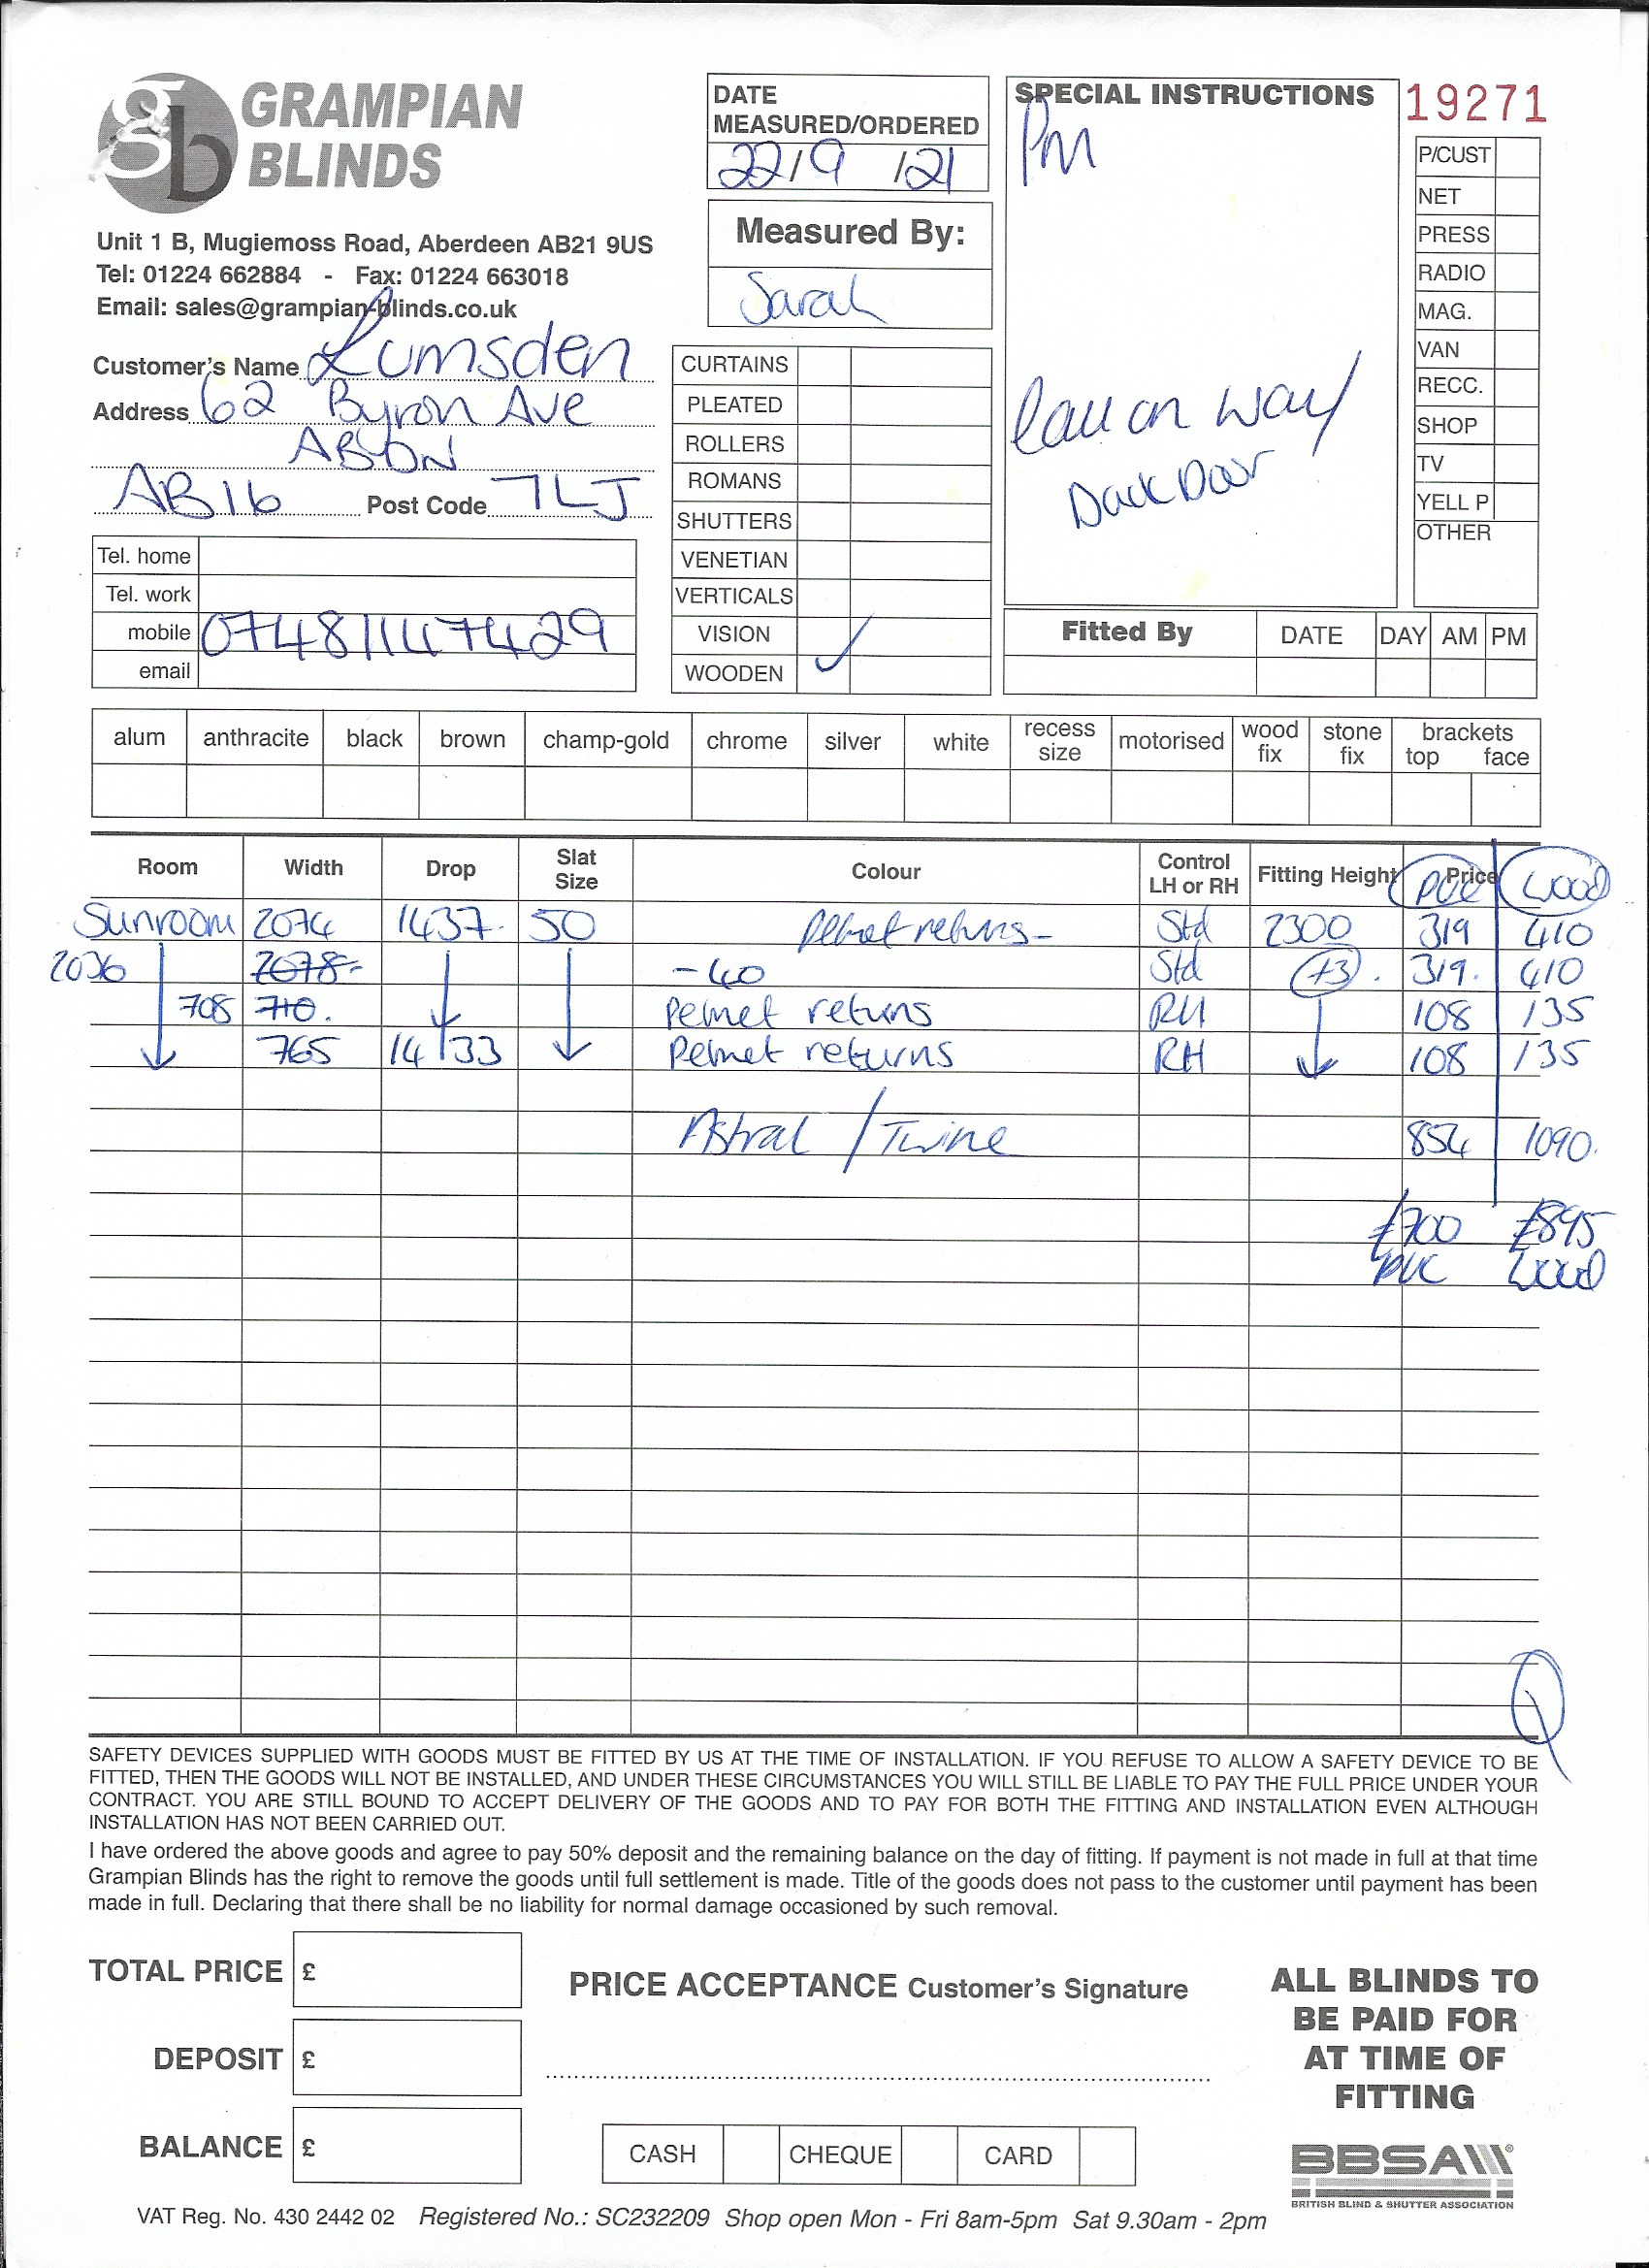 GRAMPIAN
BLINDS
Unit 1 B, Mugiemoss Road, Aberdeen AB21 9US
Tel: 01224 662884 - Fax: 01224 663018
Email: sales@grampian-blinds.co.uk
Customer's Name Lumsden
Address 62 Byron Ave
ABDN
AB16 Post Code 7LJ
Tel. home
Tel. work
mobile
email
DATE
MEASURED/ORDERED
22/9/21
Measured By:
Sarah
CURTAINS
PLEATED
ROLLERS
ROMANS
SHUTTERS
VENETIAN
VERTICALS
VISION
WOODEN ✓
SPECIAL INSTRUCTIONS
Pm
Call on way
Door
19271
P/CUST
NET
PRESS
RADIO
MAG.
VAN
RECC.
SHOP
TV
YELL P
OTHER
Fitted By DATE DAY AM PM
alum anthracite black brown champ-gold chrome silver white recess size motorised wood fix stone fix brackets top face
Room Width Drop Slat Size Colour Control LH or RH Fitting Height Price PVC Wood
Sunroom 2074 1437 50 Pelmet returns - Std 2300 319 410
2036 2078 -40 Std +3 319. 410
708 710. Pelmet returns RH 108 135
765 1433 Pelmet returns RH 108 135
Astral / Twine 854 1090.
£700 £895
PVC Wood
Q
SAFETY DEVICES SUPPLIED WITH GOODS MUST BE FITTED BY US AT THE TIME OF INSTALLATION. IF YOU REFUSE TO ALLOW A SAFETY DEVICE TO BE
FITTED, THEN THE GOODS WILL NOT BE INSTALLED, AND UNDER THESE CIRCUMSTANCES YOU WILL STILL BE LIABLE TO PAY THE FULL PRICE UNDER YOUR
CONTRACT. YOU ARE STILL BOUND TO ACCEPT DELIVERY OF THE GOODS AND TO PAY FOR BOTH THE FITTING AND INSTALLATION EVEN ALTHOUGH
INSTALLATION HAS NOT BEEN CARRIED OUT.
I have ordered the above goods and agree to pay 50% deposit and the remaining balance on the day of fitting. If payment is not made in full at that time
Grampian Blinds has the right to remove the goods until full settlement is made. Title of the goods does not pass to the customer until payment has been
made in full. Declaring that there shall be no liability for normal damage occasioned by such removal.
TOTAL PRICE £
DEPOSIT £
BALANCE £
PRICE ACCEPTANCE Customer's Signature
CASH CHEQUE CARD
ALL BLINDS TO
BE PAID FOR
AT TIME OF
FITTING
BBSA
BRITISH BLIND & SHUTTER ASSOCIATION
VAT Reg. No. 430 2442 02 Registered No.: SC232209 Shop open Mon - Fri 8am-5pm Sat 9.30am - 2pm